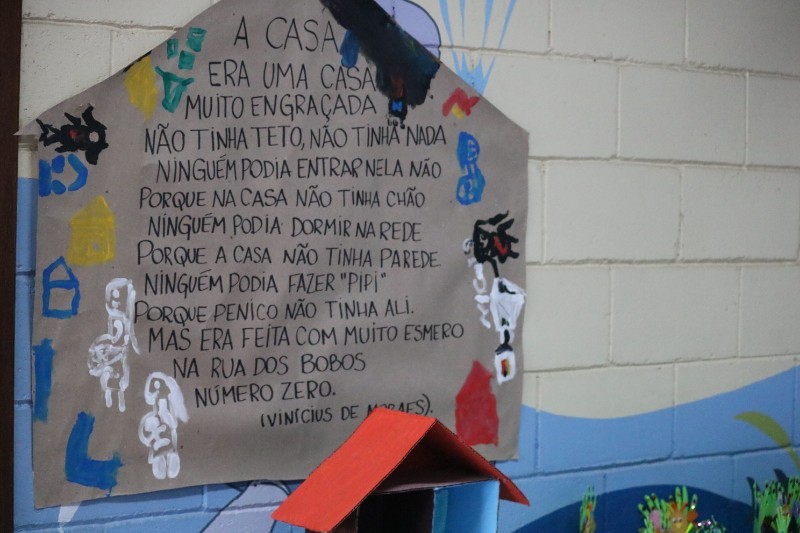 A CASA
ERA UMA CASA
MUITO ENGRAÇADA
NÃO TINHA TETO, NÃO TINHA NADA
NINGUÉM PODIA ENTRAR NELA NÃO
PORQUE NA CASA NÃO TINHA CHÃO
NINGUÉM PODIA DORMIR NA REDE
PORQUE A CASA NÃO TINHA PAREDE
NINGUÉM PODIA FAZER "PIPI"
PORQUE PENICO NÃO TINHA ALI.
MAS ERA FEITA COM MUITO ESMERO
NA RUA DOS BOBOS
NÚMERO ZERO.
(VINÍCIUS DE MORAES).